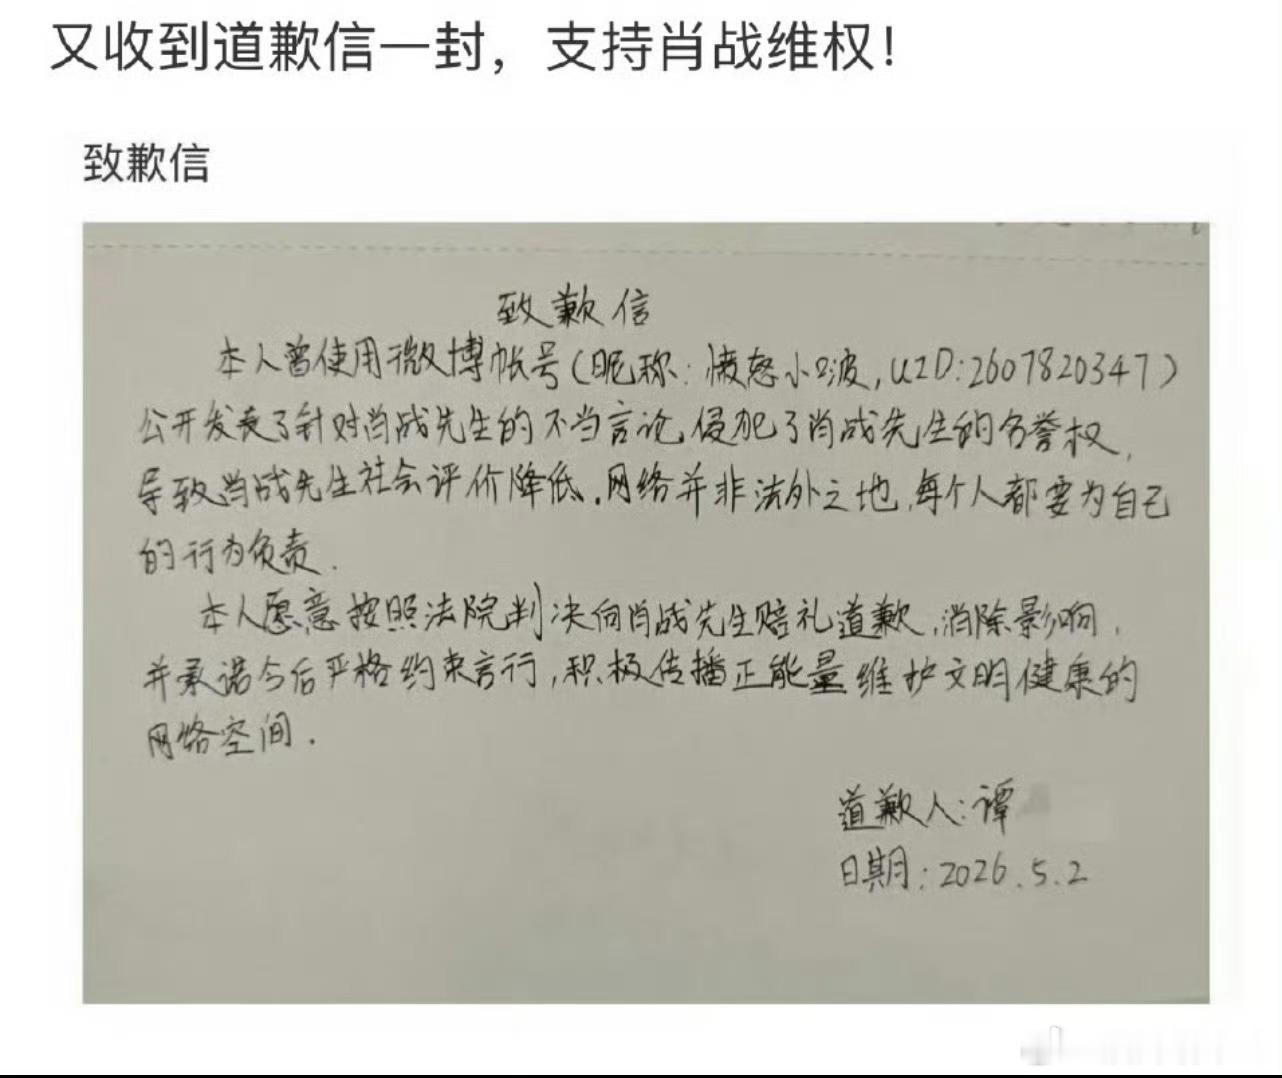 又收到道歉信一封，支持肖战维权！
致歉信
致歉信
本人曾使用微博帐号(昵称：愤怒小2波,UID:2607820347)
公开发表了针对肖战先生的不当言论,侵犯了肖战先生的名誉权,
导致肖战先生社会评价降低.网络并非法外之地,每个人都要为自己
的行为负责.
本人愿意按照法院判决向肖战先生赔礼道歉,消除影响,
并承诺今后严格约束言行,积极传播正能量维护文明健康的
网络空间.
道歉人:谭
日期:2026.5.2